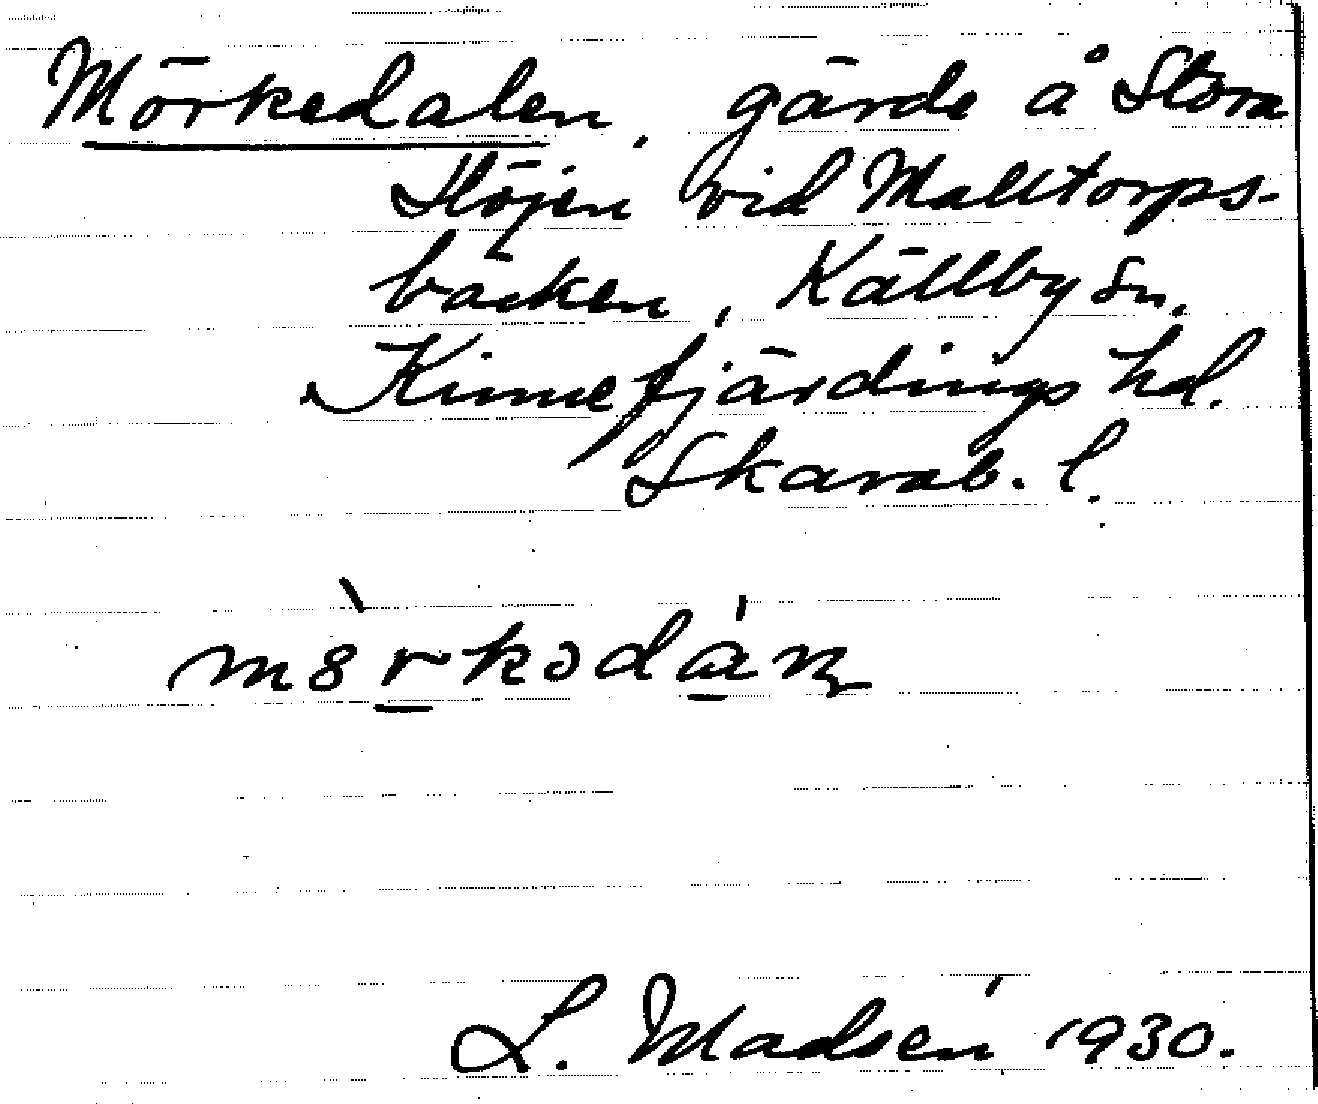 Mörkedalen, gärde å Stora
Höjen vid Malltorps-
bäcken, Källby sn,
Kinnefjärdings hd.
Skarab. l.
L. Madsén 1930.